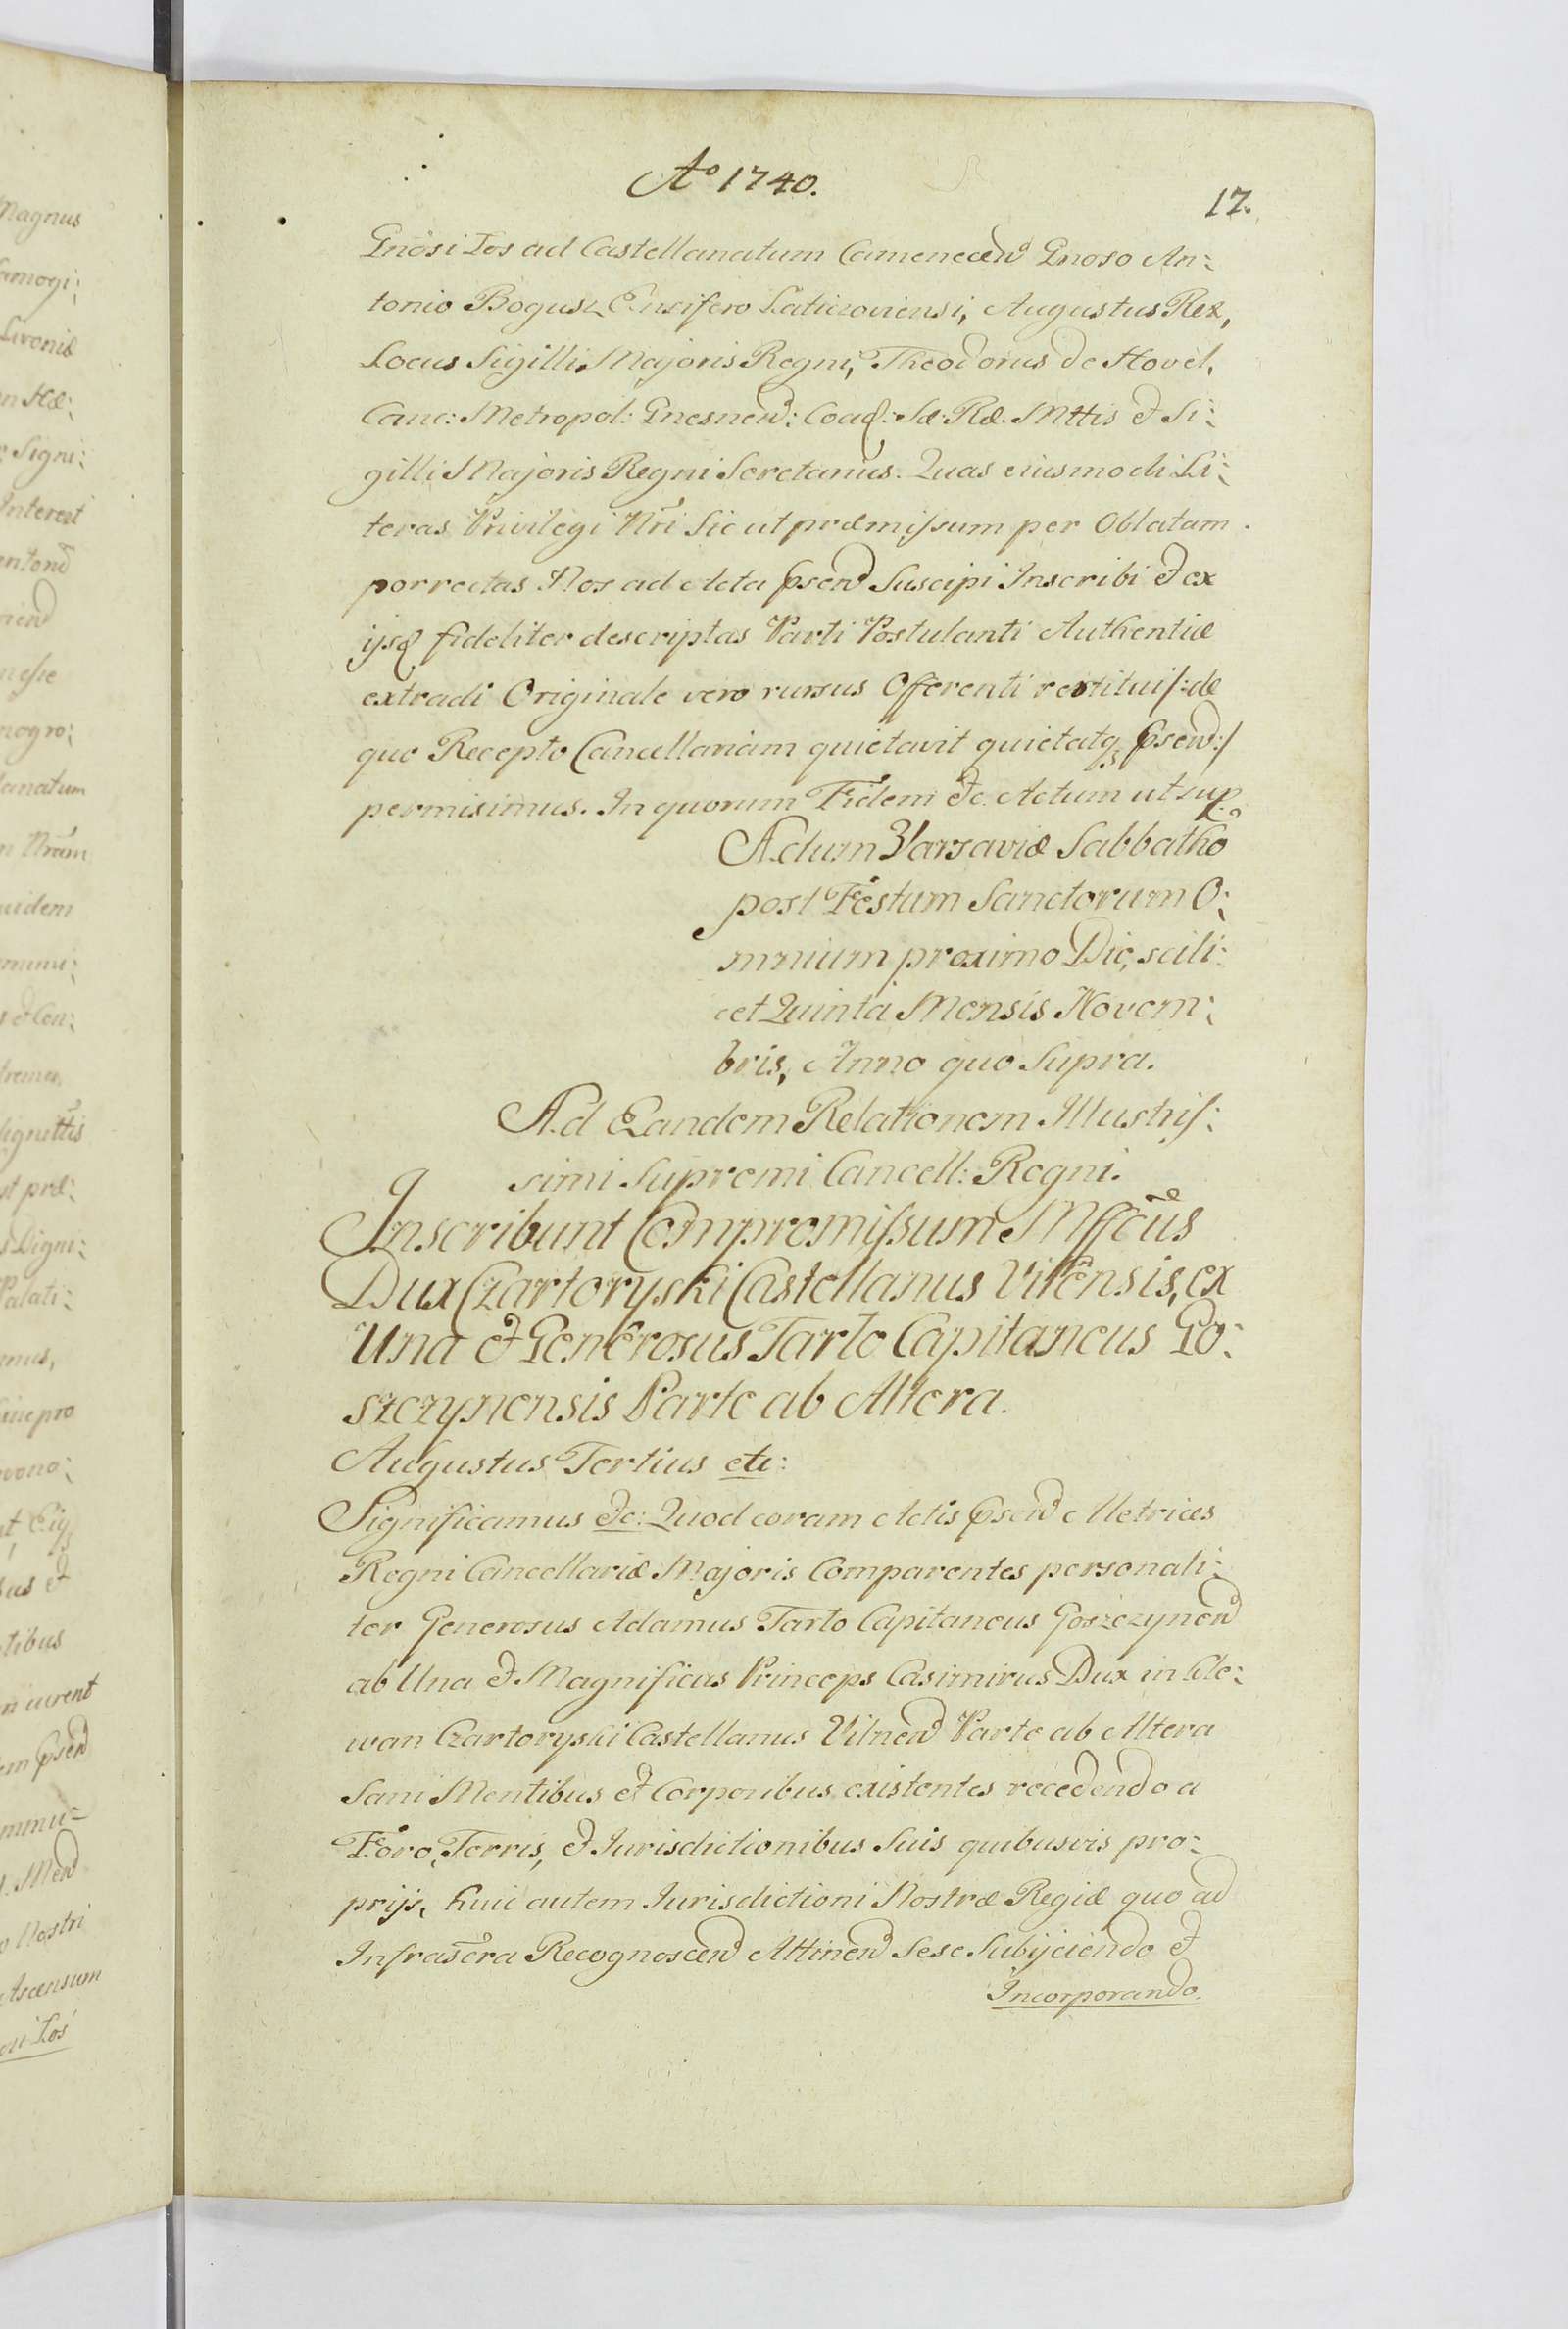 Aº 1740.
17.
Gnosi Los ad Castellanatum Camenecen Gnoso An:
tonio Bogusz Ensifero Laticzoviensi, Augustus Rex,
Locus Sigilli Majoris Regni, Theodorus de Hovel,
Canc: Metropol: Gnesnen: Coadj: Sæ: Ræ. Mttis & Si:
gilli Majoris Regni Scretarius. Quas eiusmodi Li:
teras Privilegi Nri Sic ut præmissum per Oblatam
porrectas Nos ad Acta Psen Suscipi Inscribi & ex
ijsq fideliter descriptas Parti Postulanti Authenticæ
extradi Originale vero rursus Offerenti restitui /: de
quo Recepto Cancellariam quietavit quietatq Psen :/
permisimus. In quorum Fidem &c. Actum ut sup.
Actum Varsaviæ Sabbatho
post Festum Sanctorum O:
mnium proximo Die, scili:
cet Quinta Mensis Novem:
bris, Anno quo Supra.
Ad Eandem Relationem Illustris:
simi Supremi Cancell: Regni.
Inscribunt Compromissum Mffcus
Dux Czartoryski Castellanus Vilensis, ex
Una & Generosus Tarlo Capitaneus Go:
szczynensis Parte ab Altera.
Augustus Tertius etc:
Significamus &c: Quod coram Actis Psen Metrices
Regni Cancellariæ Majoris Comparentes personali:
ter Generosus Adamus Tarlo Capitaneus Goszczynen
ab Una & Magnificus Princeps Casimirus Dux in Kle:
wan Czartoryski Castellanus Vilnen Parte ab Altera
Sani Mentibus et Corporibus existentes recedendo a
Foro, Terris, & Iurisdictionibus Suis quibusvis pro:
prijs, huic autem Iurisdictioni Nostræ Regiæ quo ad
Infrascra Recognoscen Attinen Sese Subijciendo &
Incorporando.